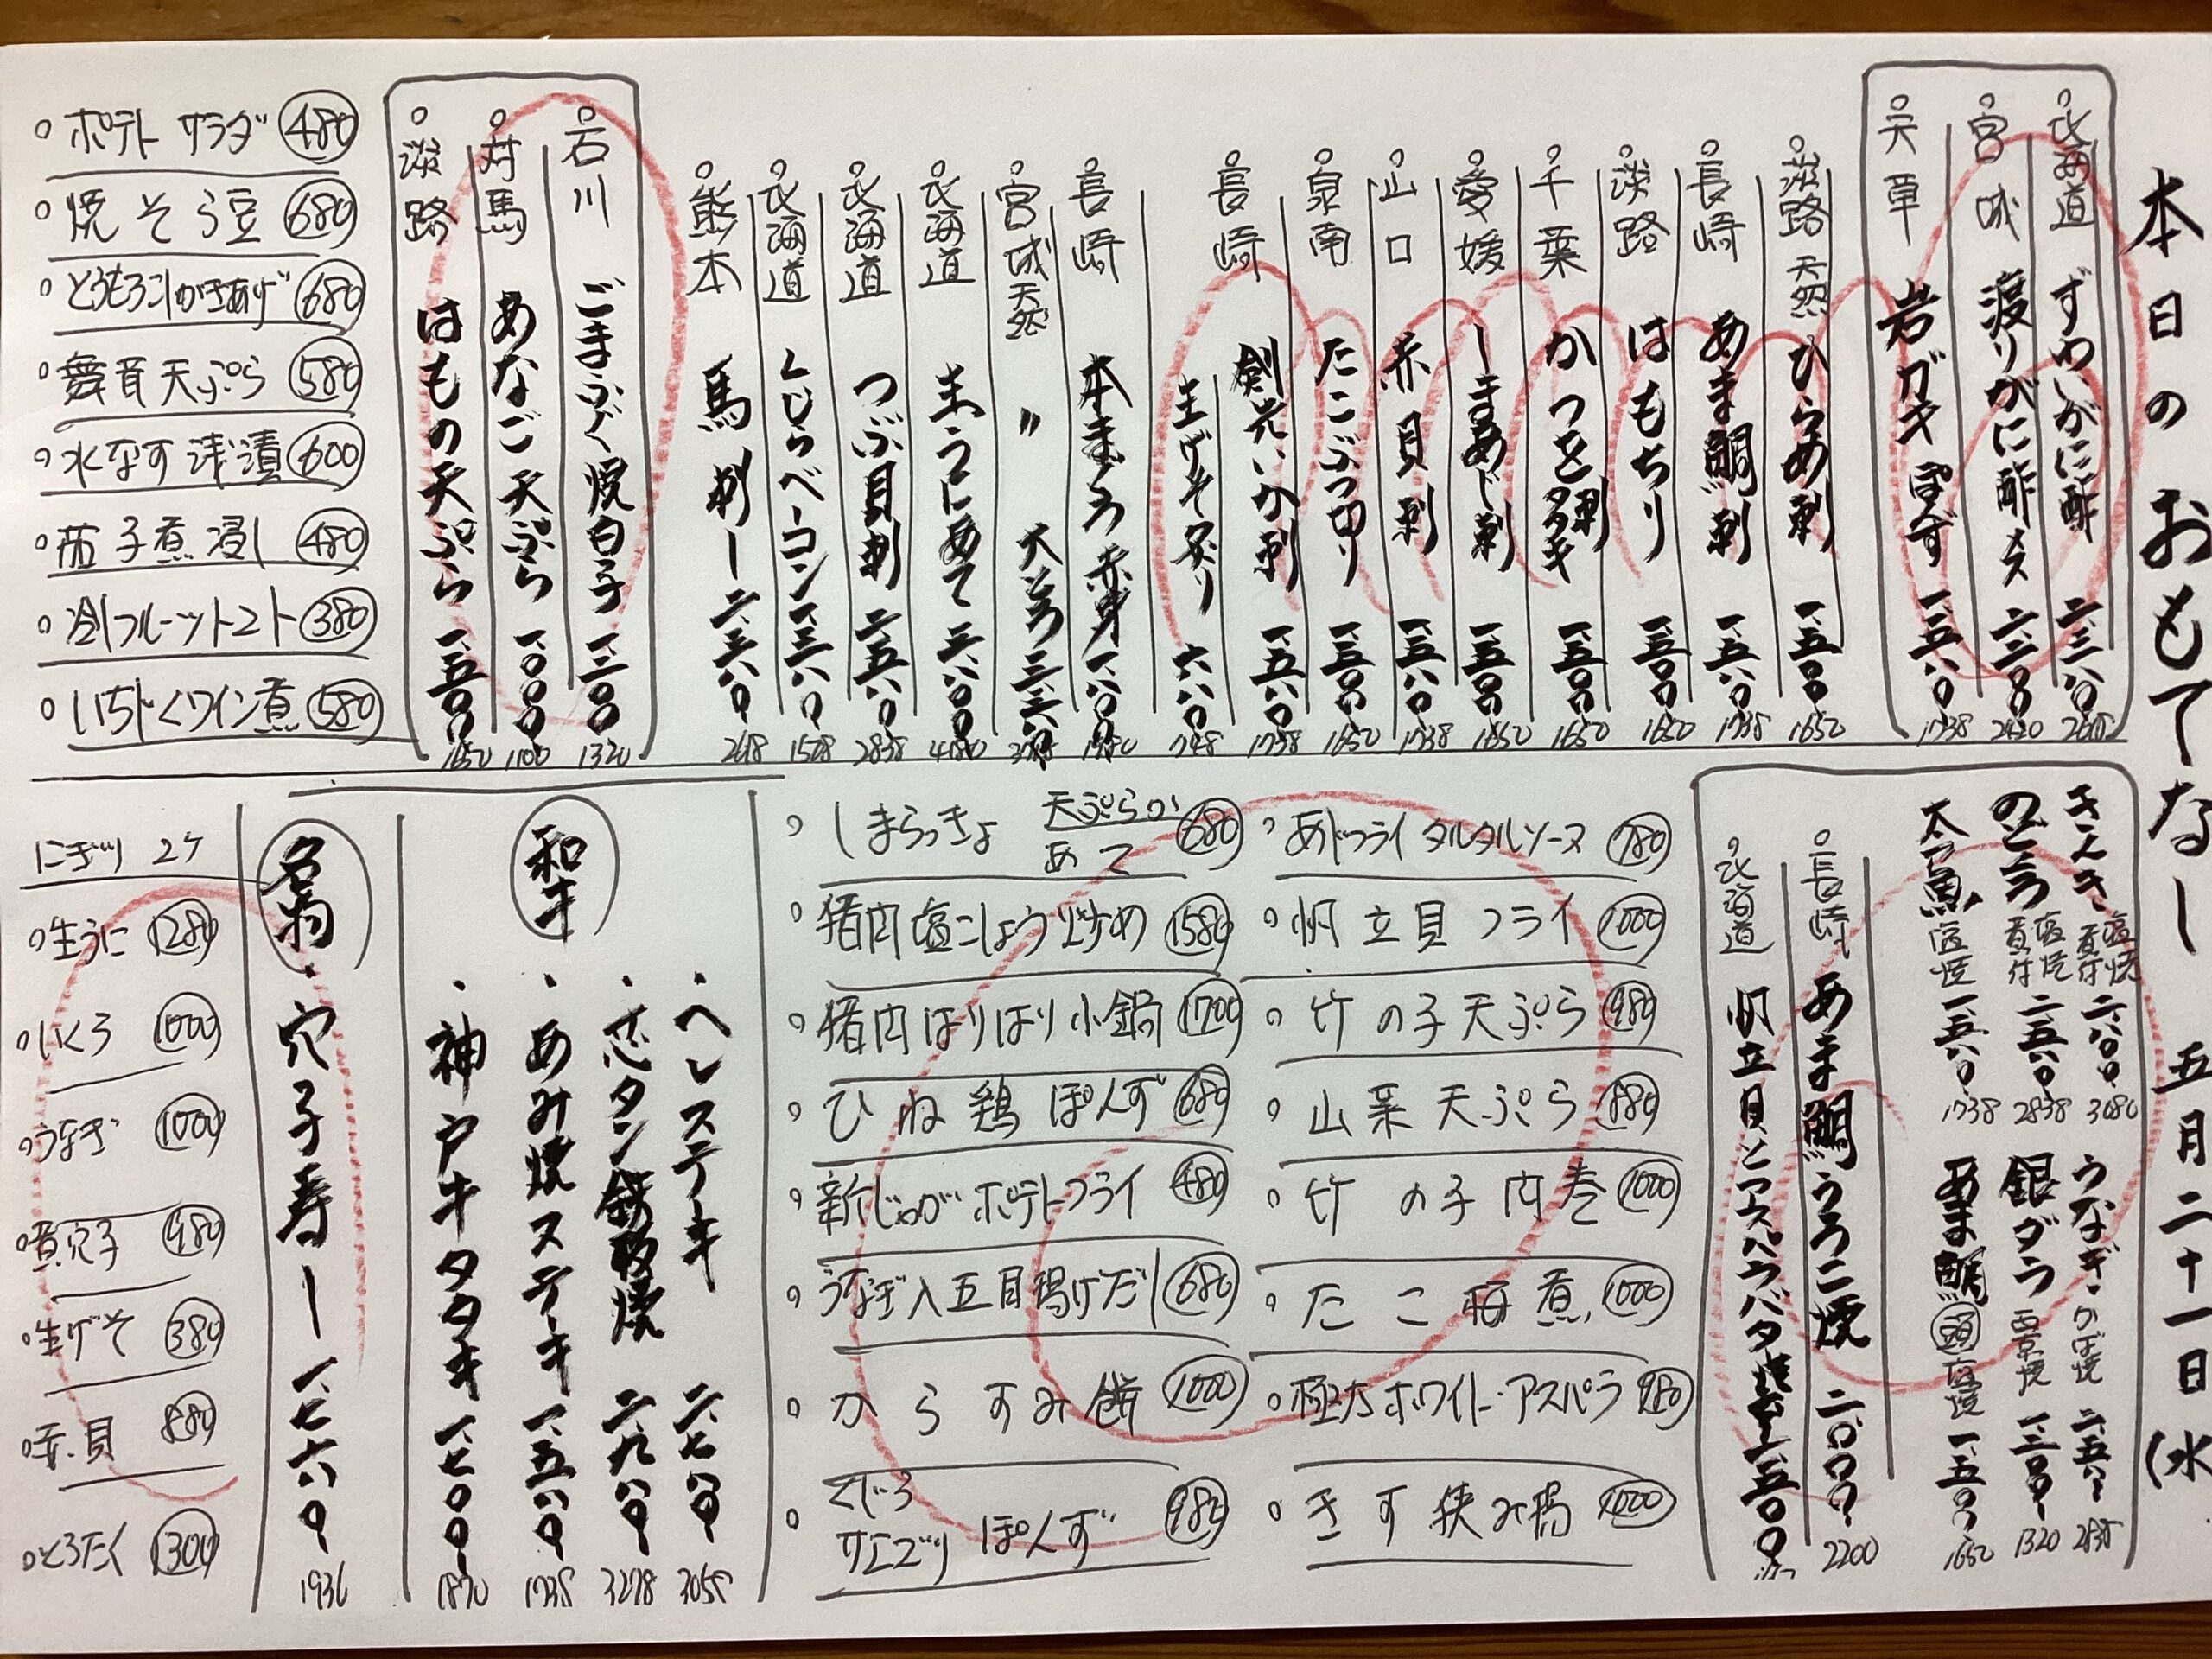 本日のおもてなし 五月二十一日(水
北海道 ずわいがに酢 二、三八〇 2618
宮城 渡りがに酢〆 二、二〇〇 2420
天草 岩ガキ ぽず 一、五八〇 1738
淡路 天然 ひらめ刺 一、五〇〇 1650
長崎 あま鯛刺 一、五八〇 1738
淡路 はもちり 一、五〇〇 1650
千葉 かつを 刺 タタキ 一、五〇〇 1650
愛媛 しまあじ刺 一、五〇〇 1650
山口 赤貝刺 一、五八〇 1738
泉南 たこぶつ切り 一、五〇〇 1650
長崎 剣先いか刺 一、五八〇 1738
生げそ 六八〇 748
長崎 本まぐろ 赤身 一、八〇〇 1980
宮城 天然 〃 大とろ
北海道 生うにあて 三、八〇〇 4180
北海道 つぶ貝刺 二、五八〇 2838
北海道 くじらベーコン 一、三八〇 1518
熊本 馬刺し 二、三八〇 2618
石川 ごまふぐ焼白子 一、二〇〇 1320
対馬 あなご天ぷら 一、〇〇〇 1100
淡路 はもの天ぷら 一、五〇〇 1650
ポテトサラダ 480
焼そら豆 680
とうもろこしかきあげ 680
舞茸天ぷら 580
水なす浅漬 600
茄子煮浸し 480
冷フルーツトマト 380
いちじくワイン煮 580
きんき 塩焼 煮付 二、八〇〇 3080
うなぎ かば焼 二、五八〇 2838
のどぐろ 塩焼 煮付 二、五八〇 2838
銀ダラ 西京焼 一、二〇〇 1320
太刀魚 塩焼 一、五八〇 1738
あま鯛 頭 塩焼 一、五〇〇 1650
長崎 あま鯛うろこ焼 二、〇〇〇 2200
北海道 帆立貝とアスパラバター焼 一、五〇〇
あじフライ タルタルソース 780
帆立貝フライ 1000
竹の子天ぷら 980
山菜天ぷら 880
竹の子肉巻 1000
たこ梅煮 1000
極太ホワイトアスパラ 980
きす挟み揚 1000
しまらっきょ 天ぷらか あて 680
猪肉塩こしょう炒め 1580
猪肉はりはり小鍋 1700
ひね鶏ぽんず 680
新じゃがポテトフライ 480
うなぎ入五目揚げだし 680
からすみ餅 1000
くじら サエズリ ぽんず 980
和牛
・ヘレステーキ 二、七八〇 3058
・芯タン鉄板焼 二、九八〇 3278
・あみ焼ステーキ 一、五八〇 1738
・神戸牛タタキ 一、七〇〇 1870
名物 ・穴子寿し 一、七六〇 1936
にぎり 2ケ
生うに 1280
いくら 1000
うなぎ 1000
煮穴子 980
生げそ 380
赤貝 880
とろたく 1300